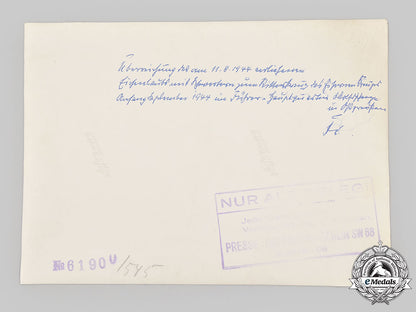 Überreichung des am 11.8.1944 verliehenen
Eichenlaubs mit Schwertern zum Ritterkreuz des Eisernen Kreuzes
Anfang September 1944 im Führer-Hauptquartier
in Ostpreußen
NUR A
PRESSE SW 68
№ 6190 U/545
eMedals